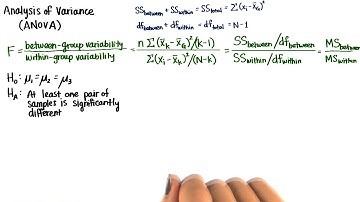 Analysis of Variance
(ANOVA)
SSbetween + SSwithin = SStotal = Σ(xᵢ - x̄G)²
dfbetween + dfwithin = dftotal = N-1
F = between-group variability / within-group variability = n Σ(x̄k - x̄G)²/(k-1) / Σ(xᵢ - x̄k)²/(N-k) = SSbetween/dfbetween / SSwithin/dfwithin = MSbetween / MSwithin
H₀: μ₁ = μ₂ = μ₃
HA: At least one pair of
samples is significantly
different